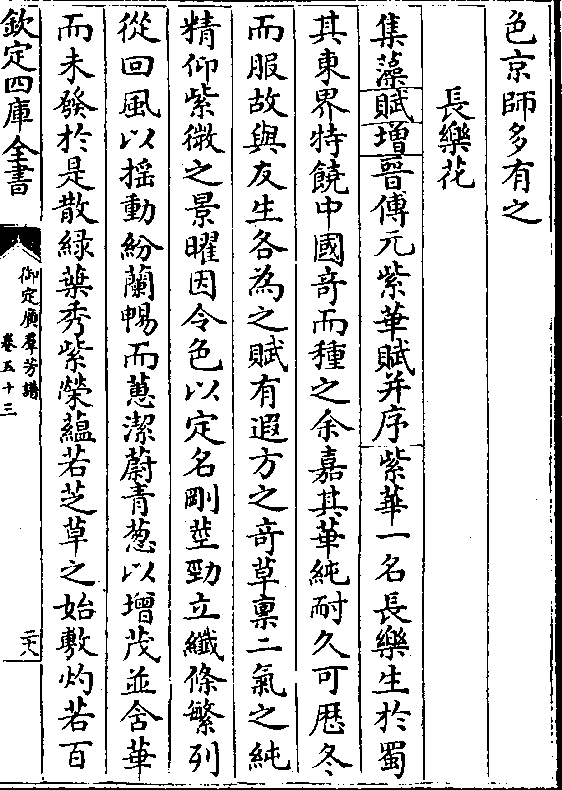 色京師多有之
長樂花
集藻賦增晉傅元紫華賦并序紫華一名長樂生於蜀
其東界特饒中國奇而種之余嘉其華純耐久可歷冬
而服故與友生各為之賦有遐方之奇草禀二氣之純
精仰紫微之景曜因令色以定名剛莖勁立纖條繁列
從回風以揺動紛蘭暢而蕙潔蔚青葱以增茂並含華
而未發於是散緑葉秀紫榮藴若芝草之始敷灼若百
欽定四庫全書
御定廣羣芳譜
卷五十三
二十八